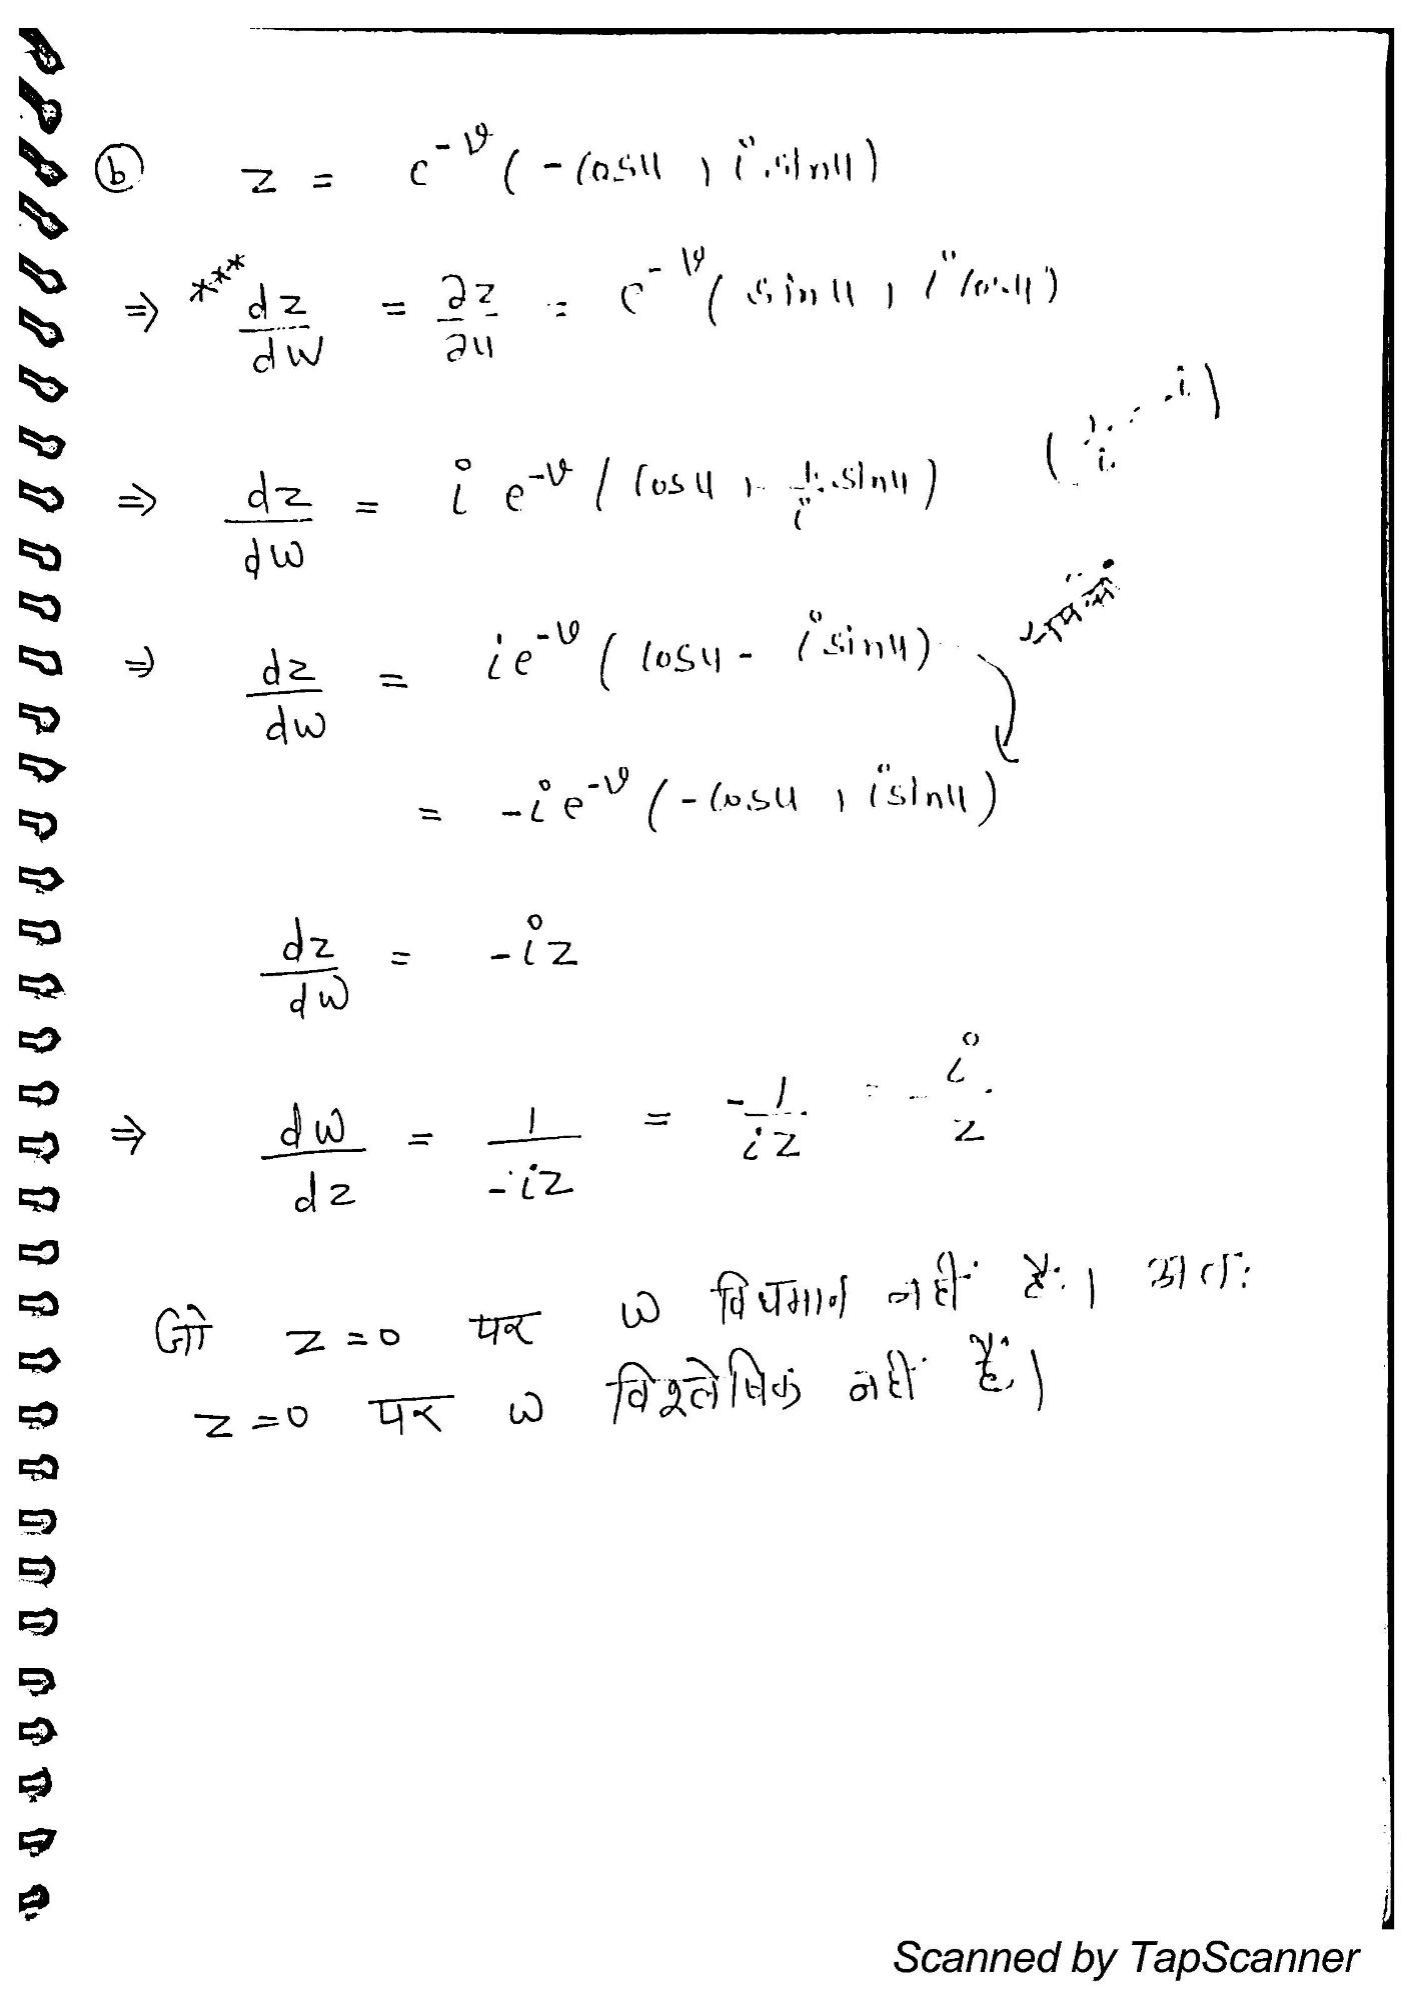 (b) z = e^{-v} (-cosu + i sinu)
⇒ *** dz/dw = ∂z/∂u = e^{-v} (sinu + i cosu)
⇒ dz/dw = i e^{-v} (cosu + 1/i sinu) (1/i = -i)
⇒ dz/dw = i e^{-v} (cosu - i sinu)
= -i e^{-v} (-cosu + i sinu)
dz/dw = -iz
⇒ dw/dz = 1/-iz = -1/iz = -i/z
जो z=0 पर w विद्यमान नहीं है। अतः
z=0 पर w विश्लेषिक नहीं है।
Scanned by TapScanner